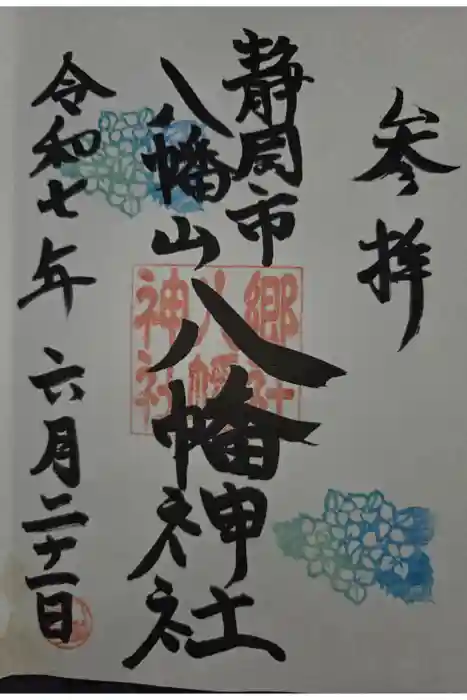 参拝
静岡市
八幡山
八幡神社
郷社
八幡
神社
令和七年 六月二十一日